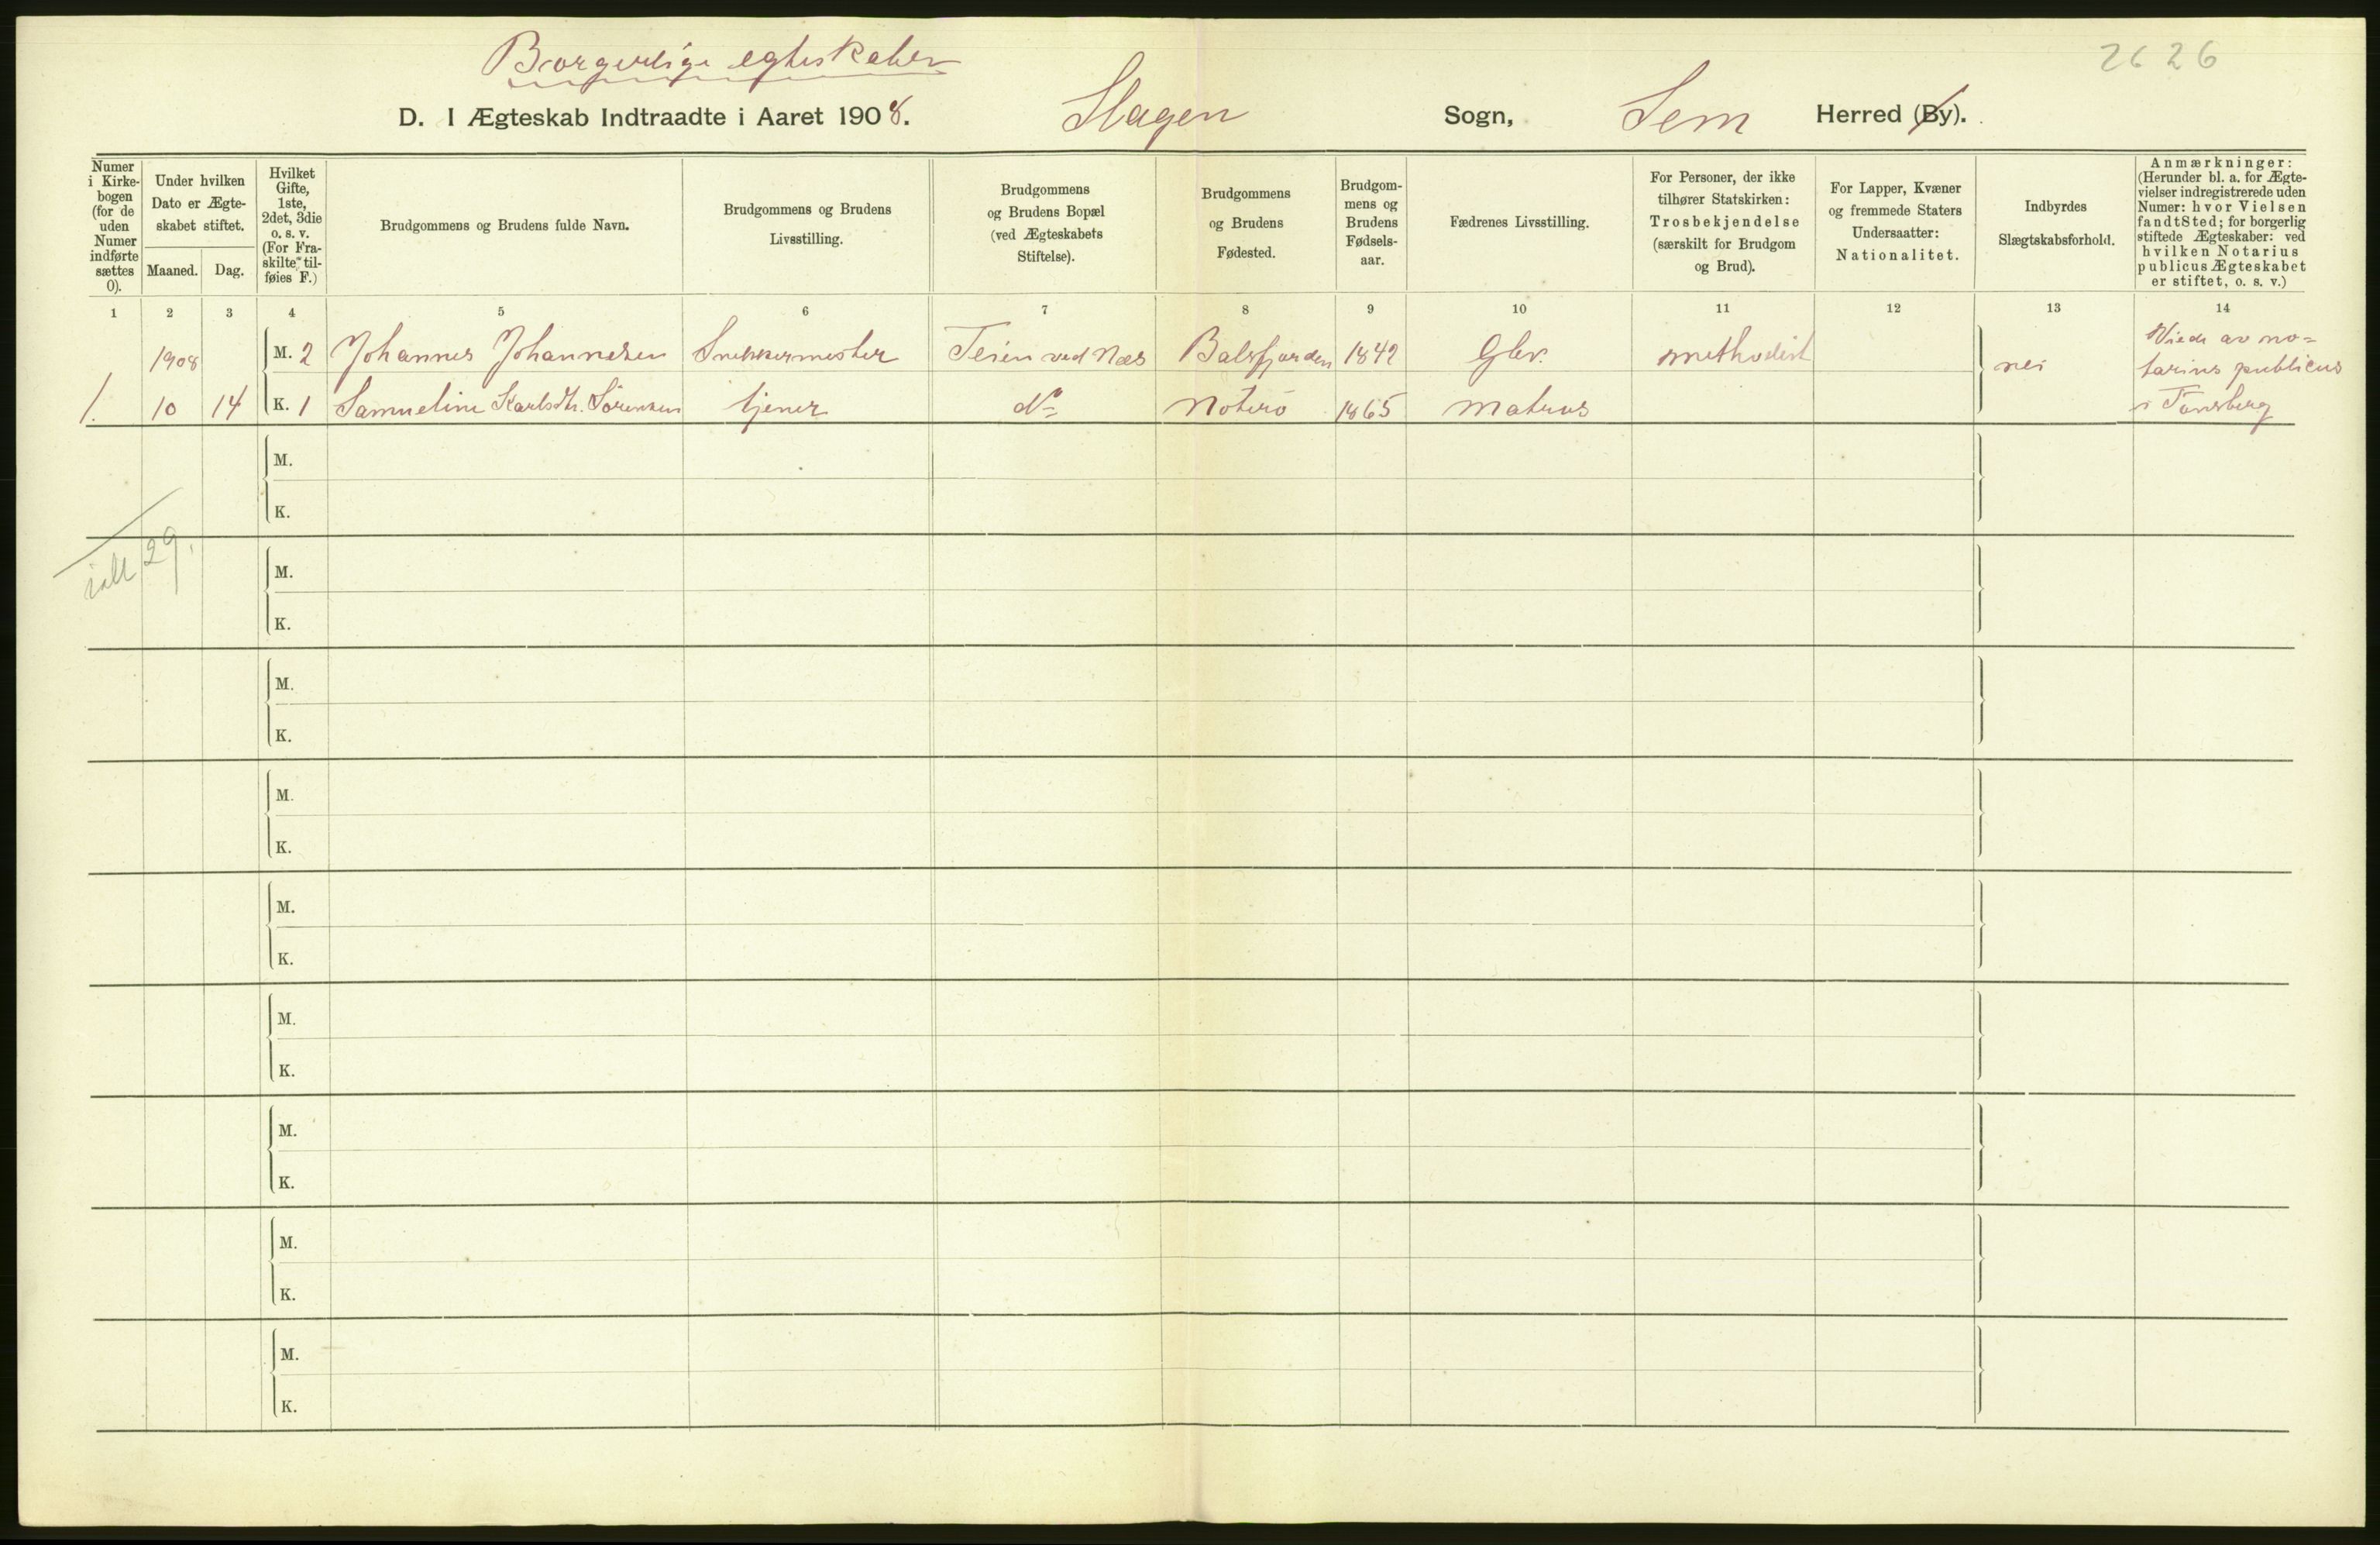 Borgerlige egteskaber
26 26
D. I Ægteskab Indtraadte i Aaret 1908. Slagen Sogn, Sem Herred (By).
Numer i Kirke-bogen (for de uden Numer indførte sættes 0).
Under hvilken Dato er Ægte-skabet stiftet.
Maaned. Dag.
Hvilket Gifte, 1ste, 2det, 3die o. s. v. (For Fra-skilte til-føies F.)
Brudgommens og Brudens fulde Navn.
Brudgommens og Brudens Livsstilling.
Brudgommens og Brudens Bopæl (ved Ægteskabets Stiftelse).
Brudgommens og Brudens Fødested.
Brudgom-mens og Brudens Fødsels-aar.
Fædrenes Livsstilling.
For Personer, der ikke tilhører Statskirken: Trosbekjendelse (særskilt for Brudgom og Brud).
For Lapper, Kvæner og fremmede Staters Undersaatter: Nationalitet.
Indbyrdes Slægtskabsforhold.
Anmærkninger: (Herunder bl. a. for Ægte-vielser indregistrerede uden Numer: hvor Vielsen fandt Sted; for borgerlig stiftede Ægteskaber: ved hvilken Notarius publicus Ægteskabet er stiftet, o. s. v.)
1 2 3 4 5 6 7 8 9 10 11 12 13 14
1908 M. 2 Johannes Johannesen Snekkermester Teien ved Næs Balsfjorden 1842 Gbr. methodist nei Viede av no=
tarius publicus
1. 10 14 K. 1 Samueline Karlsdtr. Sörensen tjener do Nøterö 1865 Matros i Tønsberg
M.
K.
ialt 29.
M.
K.
M.
K.
M.
K.
M.
K.
M.
K.
M.
K.
M.
K.
M.
K.